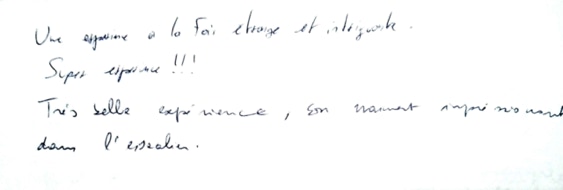 Une experience a la fois etrange et intriguante.
Super experience !!!
Très belle expérience, son vraiment impressionnant
dans l'escalier.